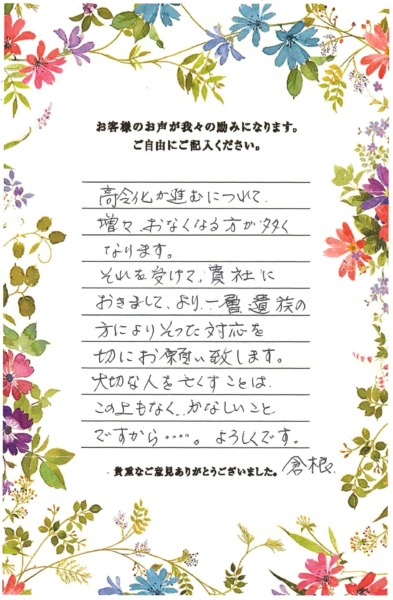 お客様のお声が我々の励みになります。
ご自由にご記入ください。
高令化が進むにつれて、
増々、おなくなる方が多く
なります。
それを受けて、貴社に
おきまして、より、一層遺族の
方によりそった対応を
切にお願い致します。
大切な人を亡くすことは、
この上もなく、かなしいこと
ですから……。よろしくです。
貴重なご意見ありがとうございました。
倉根